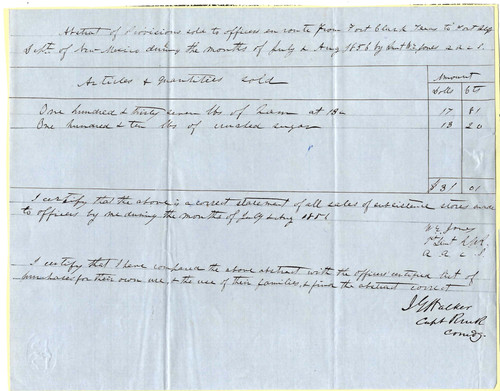 Abstract of Provisions sold to officers en route from Fort Clark Texas to
Dept. of New Mexico during the months of July & Aug 1856 by Lieut W. E. Jones a. a. c. s.
Articles & quantities sold
Amount
Dolls cts
One hundred & thirty seven lbs of ham at 13c 17 81
One hundred & ten lbs of crushed sugar 13 20
$31 01
I certify that the above is a correct statement of all sales of subsistence stores made
to officers by me during the months of July & Aug 1856
W. E. Jones
Lieut R.M.R.
A. A. C. S.
I certify that I have compared the above abstract with the officers certified list of
purchases for their own use, & the use of their families, & find the abstract correct
J G Walker
Capt R.M.R.
Comdg.